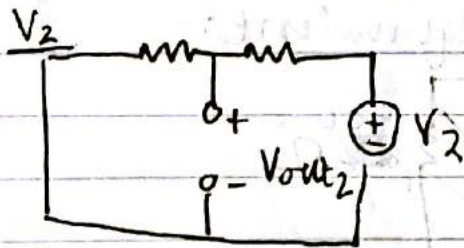 V2
+
+
-
V2
- Vout2